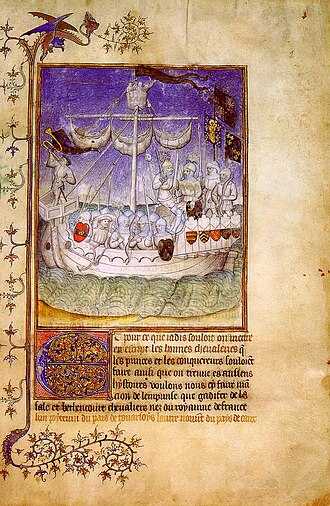 Et pour ce que iadis souloit on mettre
en escript les bonnes cheualeries q̄
les princes et les conquereurs souloient
faire ainsi que on treuue es ansiens
hystoires voulons nous cy faire mē
cion de lemprinse que gadifer de la
sale et bethencourt cheualiers nez du royaume de france
lun poiteuin du pais de touarsoys lautre du pays de caux